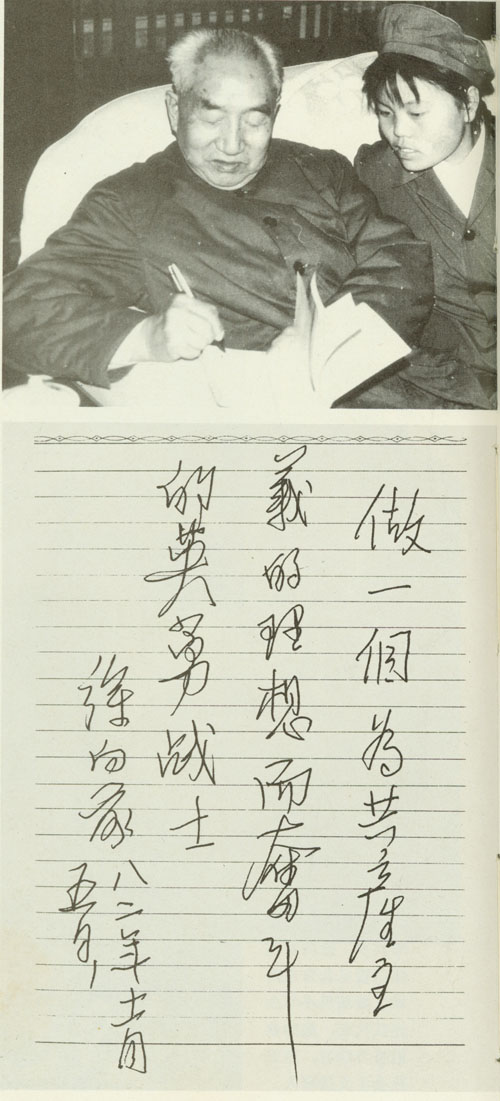 做一個為共產主
義的理想而奮斗
的英勇战士
徐向前 八二年十一月
五日